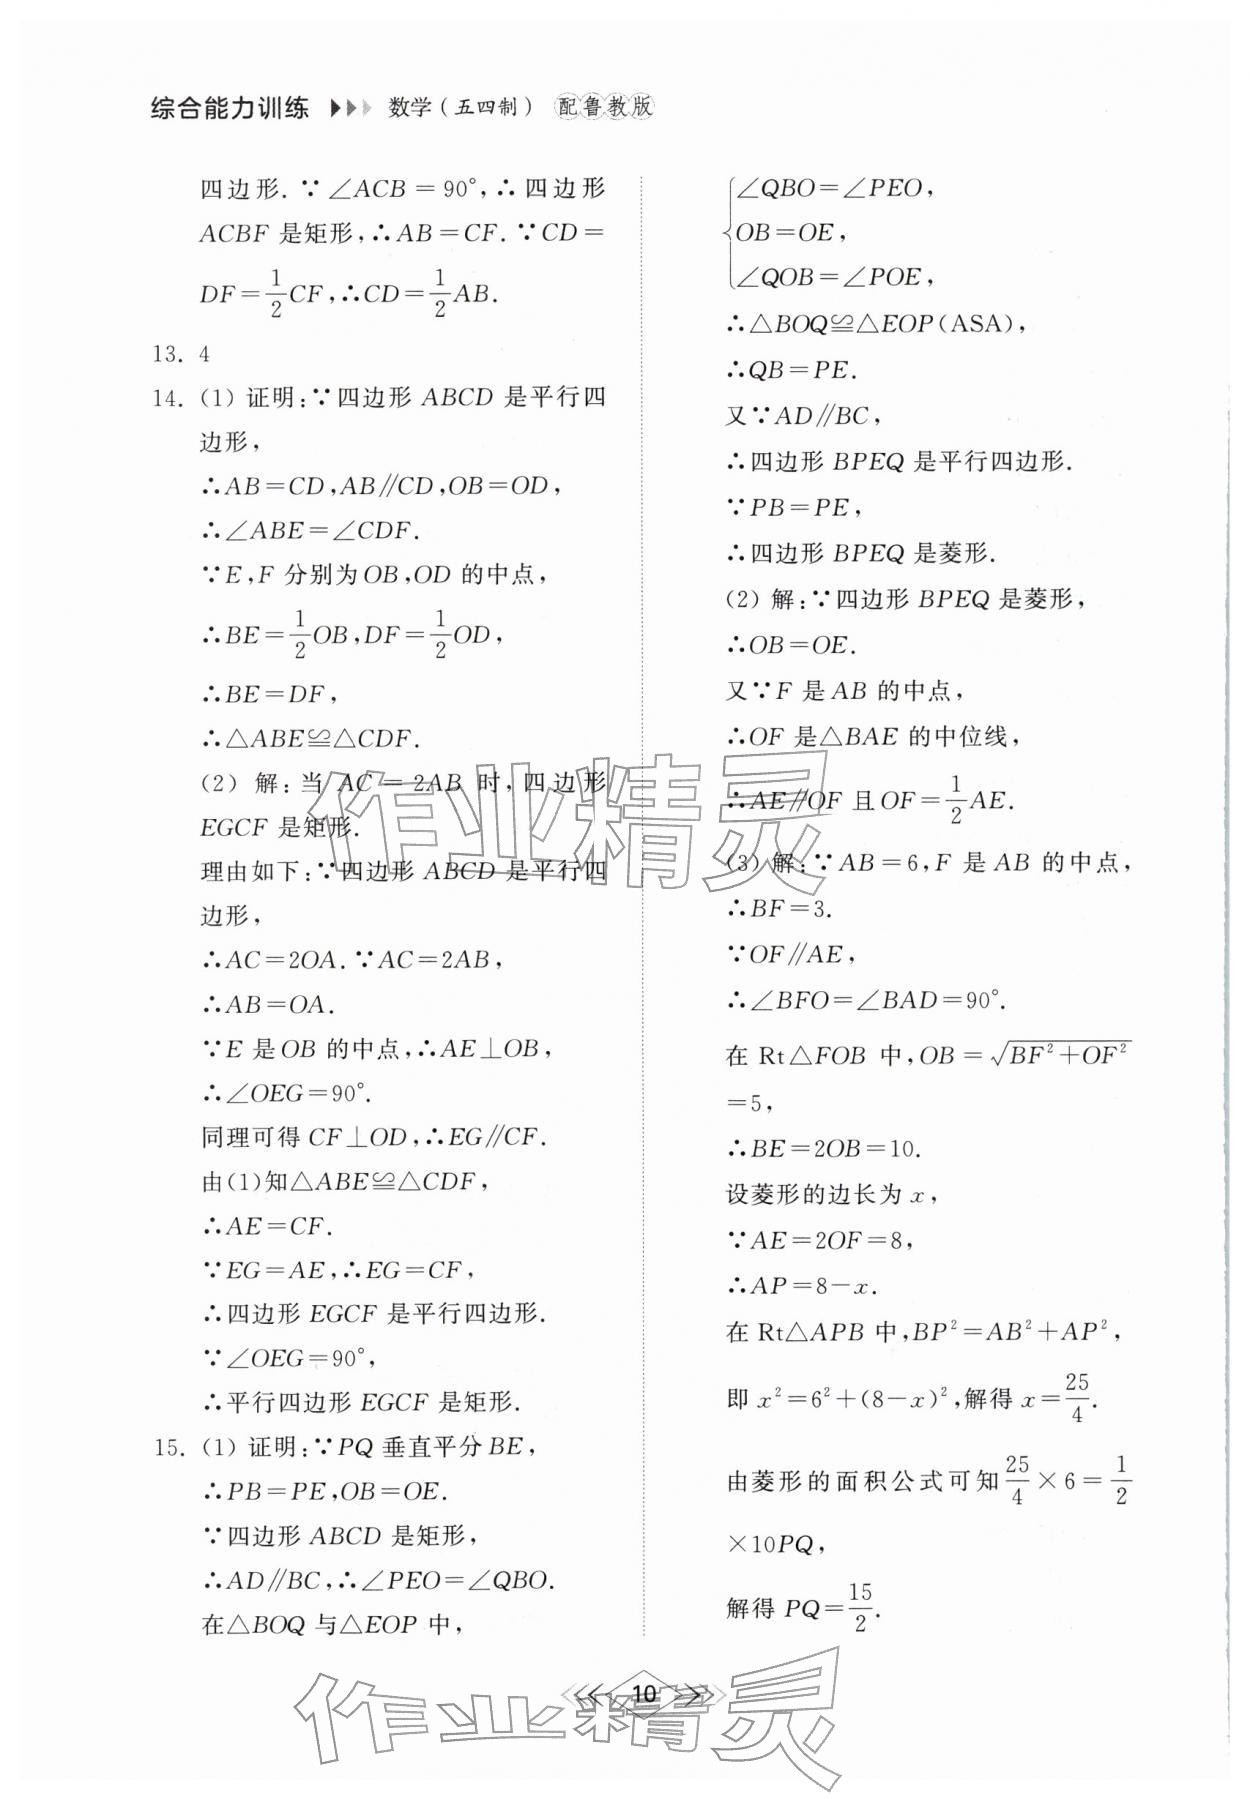 综合能力训练 数学(五四制) 配鲁教版
四边形. ∵∠ACB=90°,∴四边形
ACBF 是矩形,∴AB=CF. ∵CD=
DF=1/2CF,∴CD=1/2AB.
13. 4
14. (1) 证明:∵四边形 ABCD 是平行四
边形,
∴AB=CD,AB∥CD,OB=OD,
∴∠ABE=∠CDF.
∵E,F 分别为OB,OD 的中点,
∴BE=1/2OB,DF=1/2OD,
∴BE=DF,
∴△ABE≌△CDF.
(2) 解:当 AC=2AB 时,四边形
EGCF 是矩形.
理由如下:∵四边形 ABCD 是平行四
边形,
∴AC=2OA. ∵AC=2AB,
∴AB=OA.
∵E 是OB 的中点,∴AE⊥OB,
∴∠OEG=90°.
同理可得 CF⊥OD,∴EG∥CF.
由(1)知△ABE≌△CDF,
∴AE=CF.
∵EG=AE,∴EG=CF,
∴四边形 EGCF 是平行四边形.
∵∠OEG=90°,
∴平行四边形 EGCF 是矩形.
15. (1) 证明:∵PQ 垂直平分BE,
∴PB=PE,OB=OE.
∵四边形 ABCD 是矩形,
∴AD∥BC,∴∠PEO=∠QBO.
在△BOQ 与△EOP 中,
∠QBO=∠PEO,
OB=OE,
∠QOB=∠POE,
∴△BOQ≌△EOP(ASA),
∴QB=PE.
又∵AD∥BC,
∴四边形 BPEQ 是平行四边形.
∵PB=PE,
∴四边形 BPEQ 是菱形.
(2) 解:∵四边形 BPEQ 是菱形,
∴OB=OE.
又∵F 是 AB 的中点,
∴OF 是△BAE 的中位线,
∴AE∥OF 且OF=1/2AE.
(3) 解:∵AB=6,F 是 AB 的中点,
∴BF=3.
∵OF∥AE,
∴∠BFO=∠BAD=90°.
在 Rt△FOB 中,OB=√(BF²+OF²)
=5,
∴BE=2OB=10.
设菱形的边长为 x,
∵AE=2OF=8,
∴AP=8-x.
在 Rt△APB 中,BP²=AB²+AP²,
即 x²=6²+(8-x)²,解得 x=25/4.
由菱形的面积公式可知25/4×6=1/2
×10PQ,
解得 PQ=15/2.
10
作业精灵
作业精灵